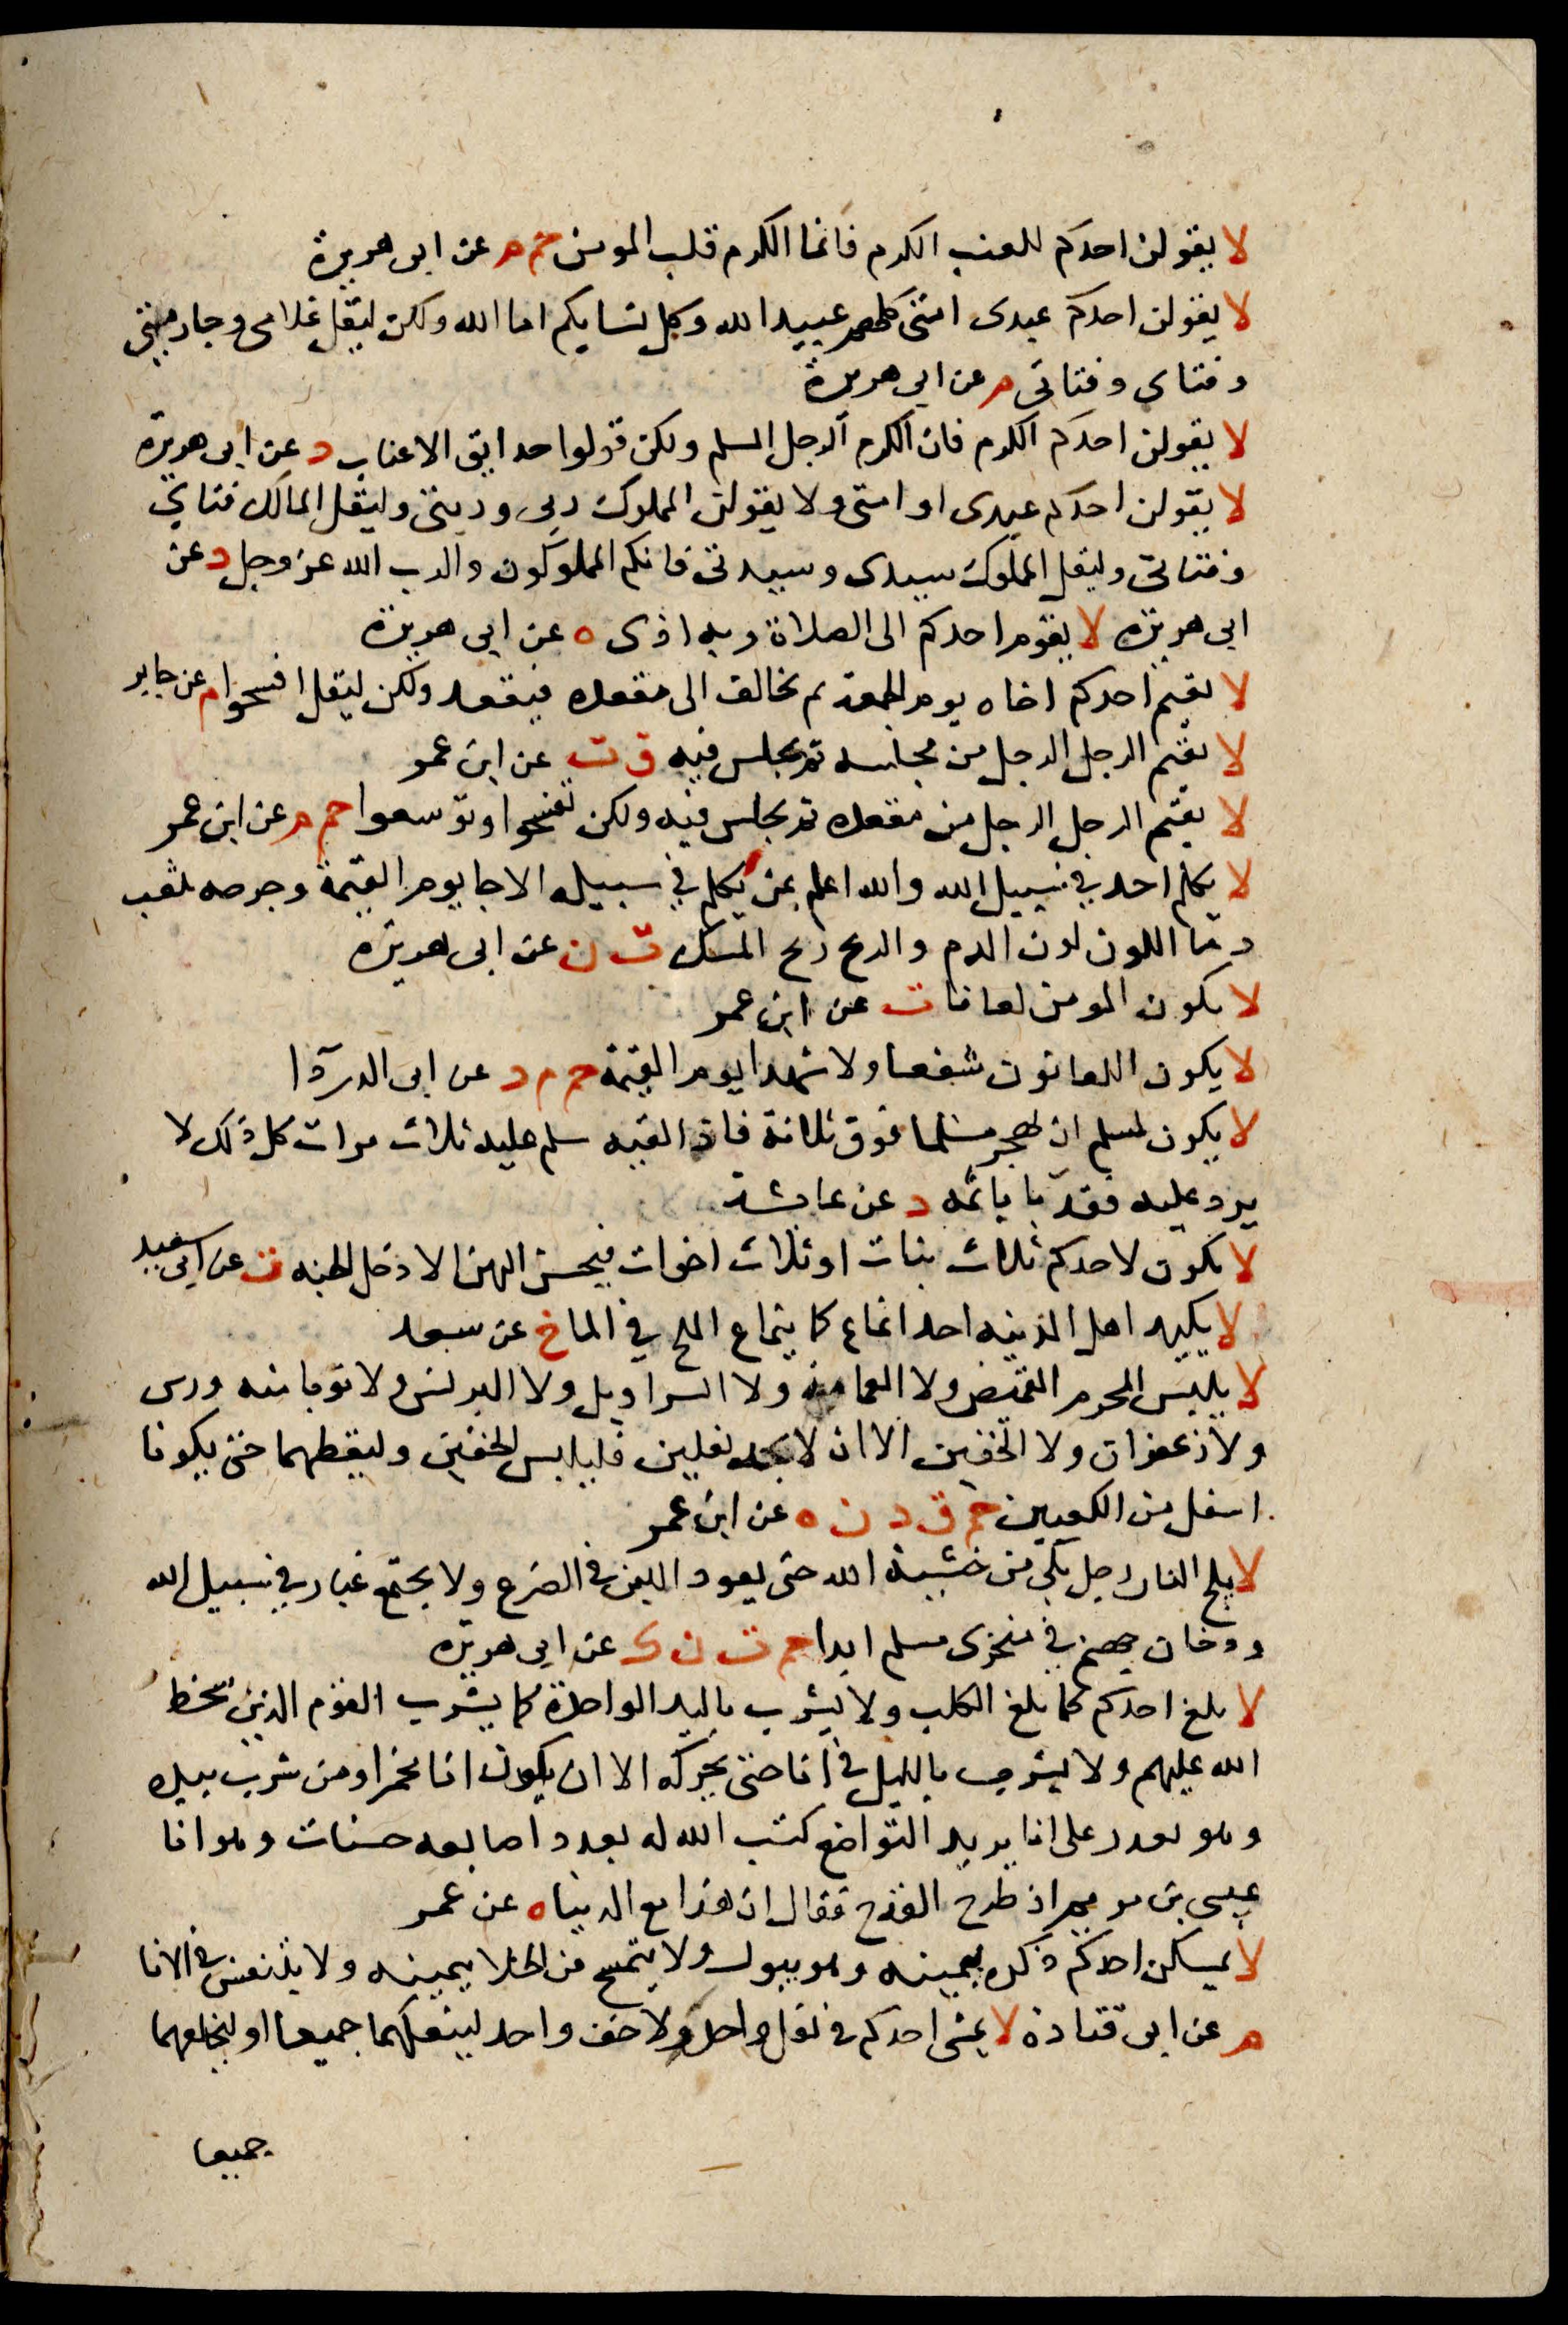 لا يقولن احدكم للعنب الكرم فانما الكرم قلب المومن حم م عن ابى هريرة
لا يقولن احدكم عبدى امتى كلهم عبيد الله وكل نسايكم اما الله ولكن ليقل غلامى وجاريتى
وفتاى وفتاتى م عن ابى هريرة
لا يقولن احدكم الكرم فان الكرم الرجل المسلم ولكن قولوا حدايق الاعناب د عن ابى هريرة
لا يقولن احدكم عبدى او امتى ولا يقولن المملوك ربى وربتى وليقل المالك فتاي
وفتاتى وليقل المملوك سيدى وسيدتى فانكم المملوكون والرب الله عز وجل د عن
ابى هريرة لا يقوم احدكم الى الصلاة وبه اذى ه عن ابى هريرة
لا يقيم احدكم اخاه يوم الجمعة ثم يخالف الى مقعده فيقعد ولكن ليقل افسحوا م عن جابر
لا يقيم الرجل الرجل من مجلسه ثم يجلس فيه ق ت عن ابن عمر
لا يقيم الرجل الرجل من مقعده ثم يجلس فيه ولكن تفسحوا وتوسعوا حم م عن ابن عمر
لا يكلم احد في سبيل الله والله اعلم بمن يكلم في سبيله الا جا يوم القيمة وجرحه يثعب
دما اللون لون الدم والريح ريح المسك ت ن عن ابى هريرة
لا يكون المومن لعانا ت عن ابن عمر
لا يكون اللعانون شفعا ولا شهدا يوم القيمة حم م د عن ابى الدردا
لا يكون لمسلم ان يهجر مسلما فوق ثلاثة فاذا لقيه سلم عليه ثلاث مرات كل ذلك لا
يرد عليه فقد با باثمه د عن عايشة
لا يكون لاحدكم ثلاث بنات او ثلاث اخوات فيحسن اليهن الا دخل الجنه ت عن ابى سعيد
لا يكيد اهل المدينه احد انماع كما ينماع الملح في الما خ عن سعد
لا يلبس المحرم القميص ولا العمامة ولا السراويل ولا البرنس ولا ثوبا مسه ورس
ولا زعفران ولا الخفين الا ان لا يجد نعلين فليلبس الخفين وليقطهما حتى يكونا
اسفل من الكعبين حم ق د ن ه عن ابن عمر
لا يلج النار رجل بكى من خشية الله حتى يعود اللبن في الضرع ولا يجتمع غبار في سبيل الله
ودخان جهنم في منخرى مسلم ابدا حم ت ن ك عن ابى هريرة
لا يلغ احدكم كما يلغ الكلب ولا يشرب باليد الواحدة كما يشرب القوم الذين سخط
الله عليهم ولا يشرب بالليل في انا حتى يحركه الا ان يكون انا مخمرا ومن شرب بيده
وهو يقدر على انا يريد التواضع كتب الله له بعدد اصابعه حسنات وهو انا
عيسى بن مريم اذ طرح القدح فقال ان هذا مع الدنيا ه عن عمر
لا يمسكن احدكم ذكره بيمينه وهو يبول ولا يتمسح من الخلا بيمينه ولا يتنفس في الانا
م عن ابى قتادة لا يمشى احدكم في نعل واحد ولا خف واحد لينعلهما جميعا او ليخلعهما
جميعا